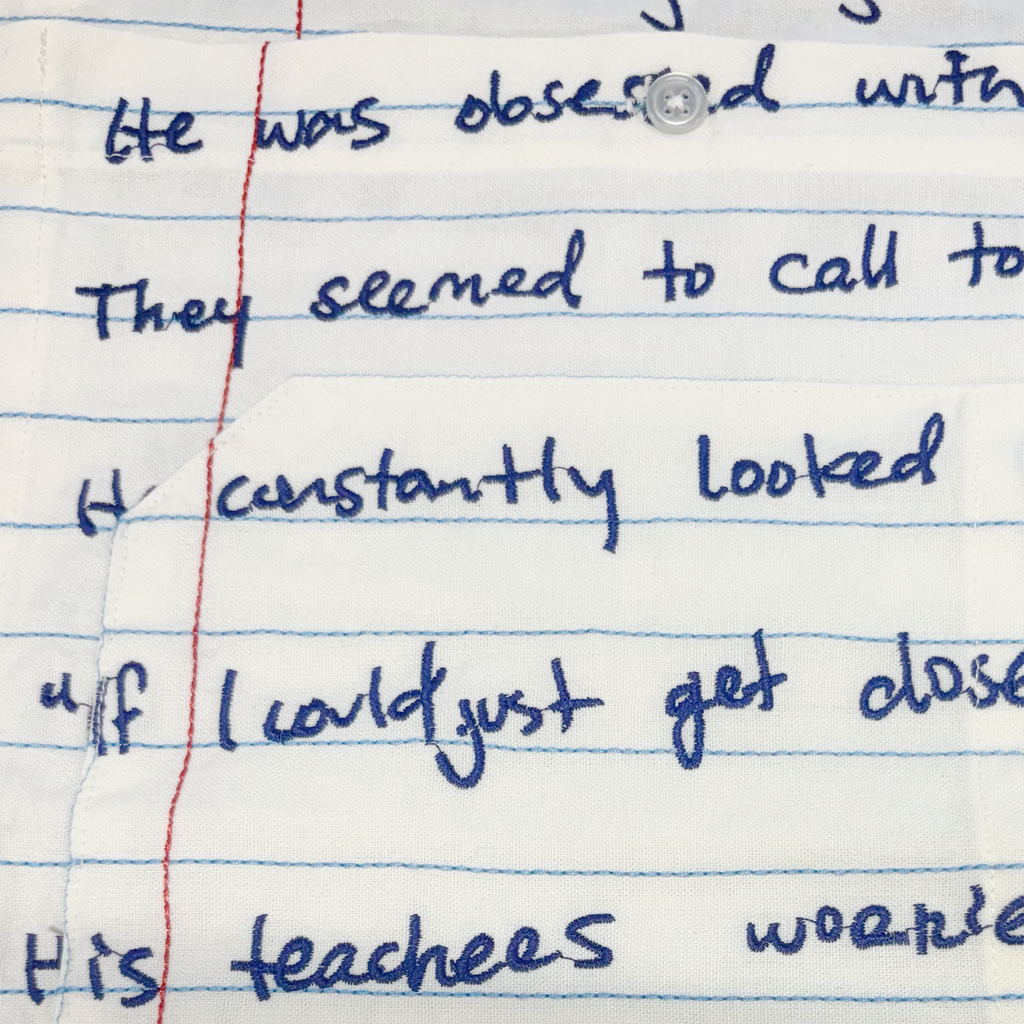 He was obsessed with
They seemed to call to
H constantly looked
"If I could just get close
His teachees woerie